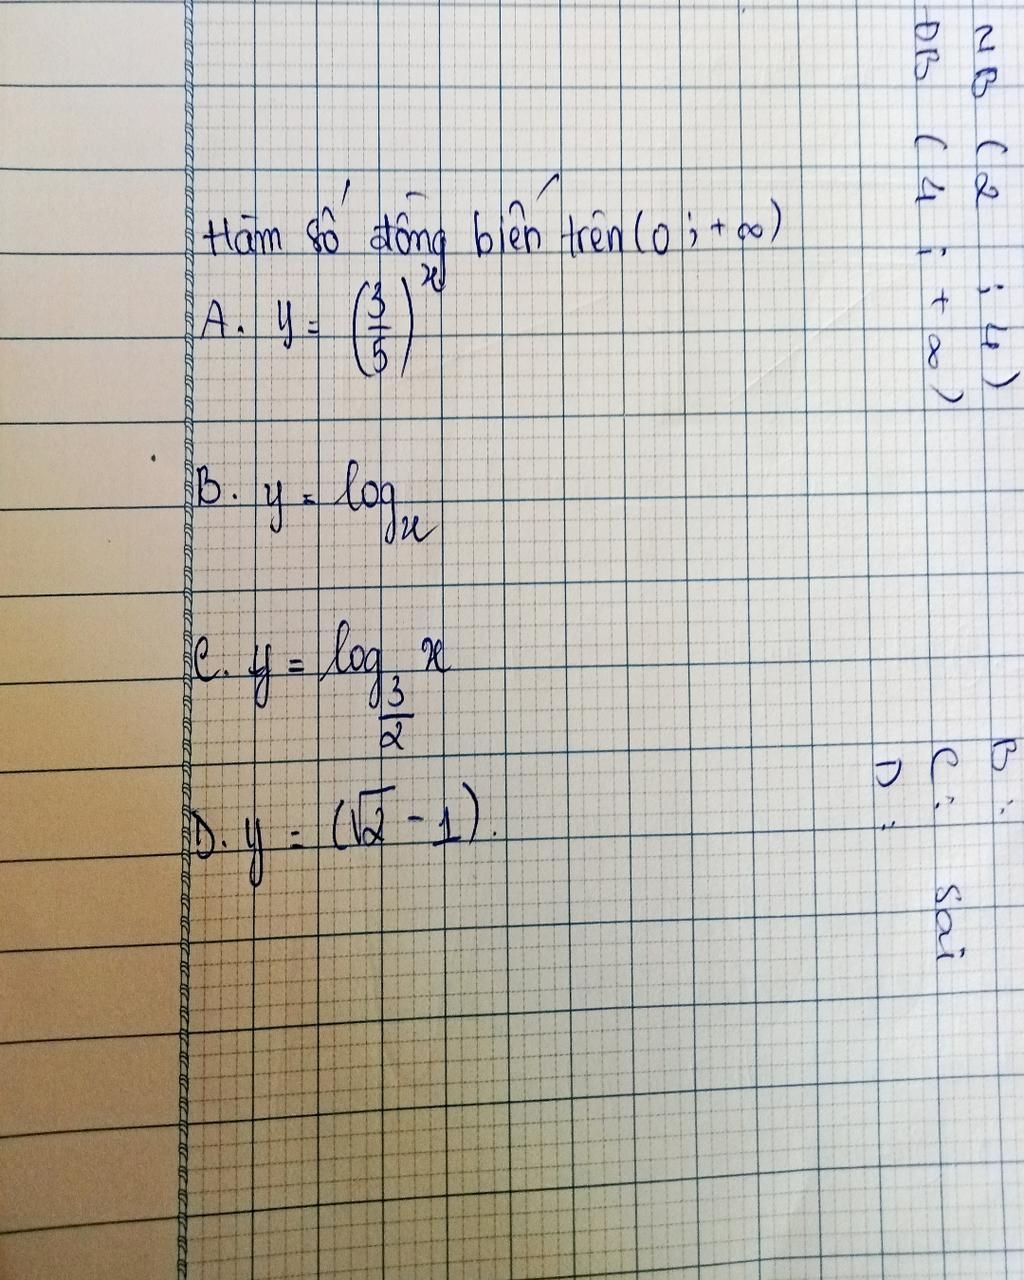 Hàm số đồng biến trên (0 ; + ∞)
A. y = (3/5)^x
B. y = log_x
C. y = log_{3/2} x
D. y = (√2 - 1).
NB (2 ; 4)
ĐB (4 ; + ∞)
B :
C : sai
D :